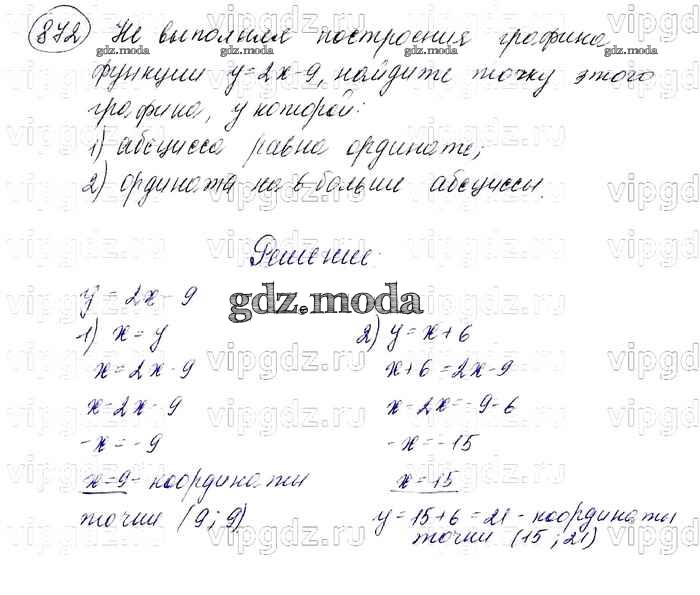 872) Не выполняя построения графика
функции y=2x-9, найдите точку этого
графика, у которой:
1) абсцисса равна ординате;
2) ордината на 6 больше абсциссы.
Решение:
y = 2x - 9
gdz.moda
1) x = y
x = 2x - 9
x - 2x - 9
-x = -9
x = 9 - координаты
точки (9; 9)
2) y = x + 6
x + 6 = 2x - 9
x - 2x = -9 - 6
-x = -15
x = 15
y = 15 + 6 = 21 - координаты
точки (15; 21)